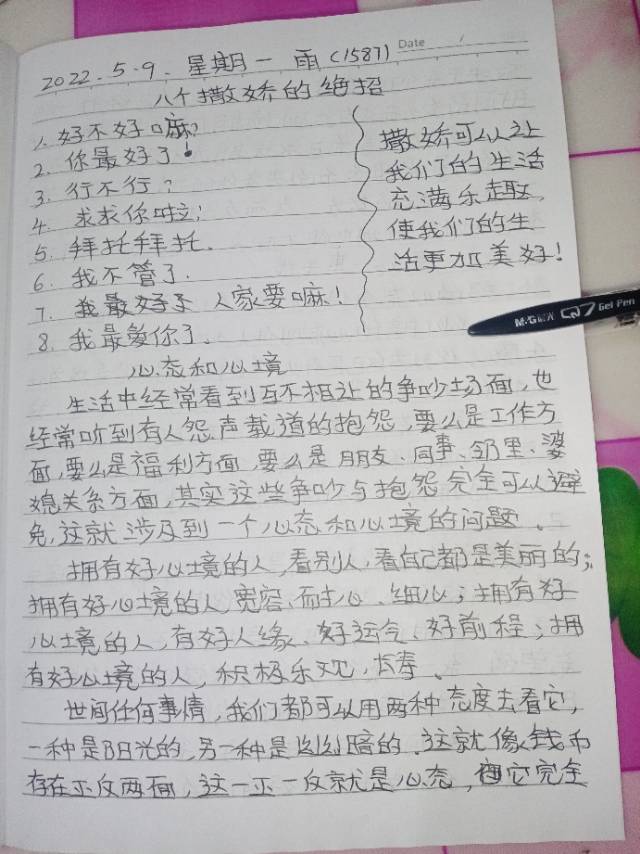 Date
2022.5.9.星期一 雨(1587)
八个撒娇的绝招
1.好不好嘛?
2.你最好了!
3.行不行?
4.求求你啦!
5.拜托拜托.
6.我不管了.
7. 人家要嘛!
8.我最爱你了.
撒娇可以让
我们的生活
充满乐趣,
使我们的生
活更加美好!
M&G Q7 Gel Pen
心态和心境
生活中经常看到互不相让的争吵场面,也
经常听到有人怨声载道的抱怨,要么是工作方
面,要么是福利方面,要么是朋友、同事、邻里、婆
媳关系方面,其实这些争吵与抱怨完全可以避
免,这就涉及到一个心态和心境的问题。
拥有好心境的人,看别人,看自己都是美丽的;
拥有好心境的人,宽容、耐心、细心;拥有好
心境的人,有好人缘、好运气、好前程;拥
有好心境的人,积极乐观,长寿。
世间任何事情,我们都可以用两种态度去看它,
一种是阳光的,另一种是幽暗的.这就像钱币
存在正反两面,这一正一反就是心态,它完全